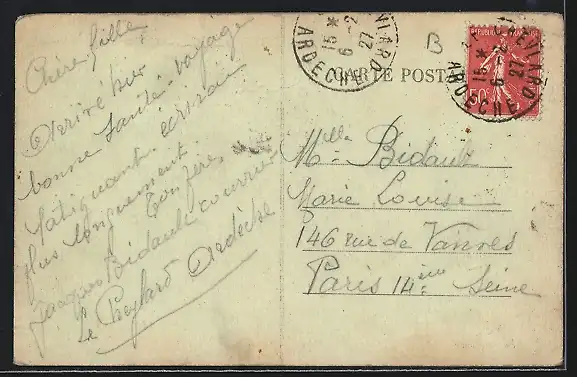 Chère fille
Arrivé sur
bonne Santé voyage
fatiguant. écrirai
plus longuement
Ton père,
Jacques Bidault courrier
Le Cheylard Ardèche
15 *
6 - 2
27
ARDECHE
B
CARTE POSTALE
REPUBLIQUE
50c
15 *
27
ARDECHE
Mlle Bidault
Marie Louise
146 rue de Vanves
Paris 14ème Seine